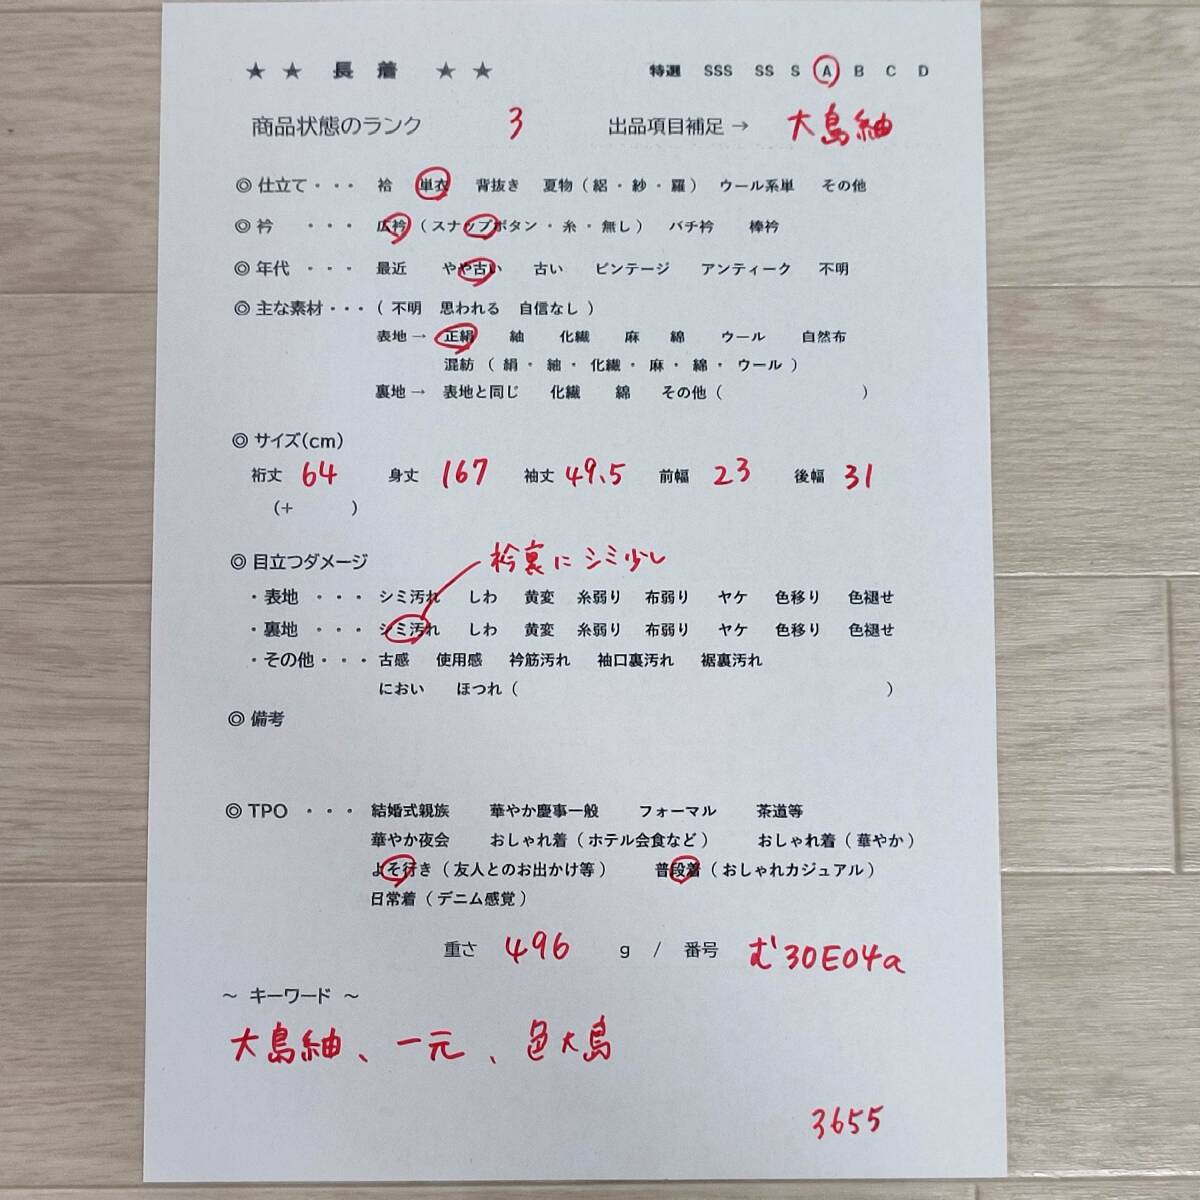 ★ ★ 長 着 ★ ★ 特選 SSS SS S A B C D
商品状態のランク 3 出品項目補足 → 大島紬
◎ 仕立て・・・ 袷 単衣 背抜き 夏物（ 絽・紗・羅 ） ウール系単 その他
◎ 衿 ・・・ 広衿（ スナップボタン・糸・無し ） バチ衿 棒衿
◎ 年代 ・・・ 最近 やや古い 古い ビンテージ アンティーク 不明
◎ 主な素材・・・（ 不明 思われる 自信なし ）
表地 → 正絹 紬 化繊 麻 綿 ウール 自然布
混紡（ 絹・紬・化繊・麻・綿・ウール ）
裏地 → 表地と同じ 化繊 綿 その他（ ）
◎ サイズ(cm)
裄丈 64 身丈 167 袖丈 49.5 前幅 23 後幅 31
（+ ）
◎ 目立つダメージ 衿裏にシミ少し
・表地 ・・・ シミ汚れ しわ 黄変 糸弱り 布弱り ヤケ 色移り 色褪せ
・裏地 ・・・ シミ汚れ しわ 黄変 糸弱り 布弱り ヤケ 色移り 色褪せ
・その他・・・ 古感 使用感 衿筋汚れ 袖口裏汚れ 裾裏汚れ
におい ほつれ（ ）
◎ 備考
◎ TPO ・・・ 結婚式親族 華やか慶事一般 フォーマル 茶道等
華やか夜会 おしゃれ着（ ホテル会食など ） おしゃれ着（ 華やか ）
よそ行き（ 友人とのお出かけ等 ） 普段着（ おしゃれカジュアル ）
日常着（ デニム感覚 ）
重さ 496 g / 番号 む30E04a
～ キーワード ～
大島紬、一元、色大島
3655